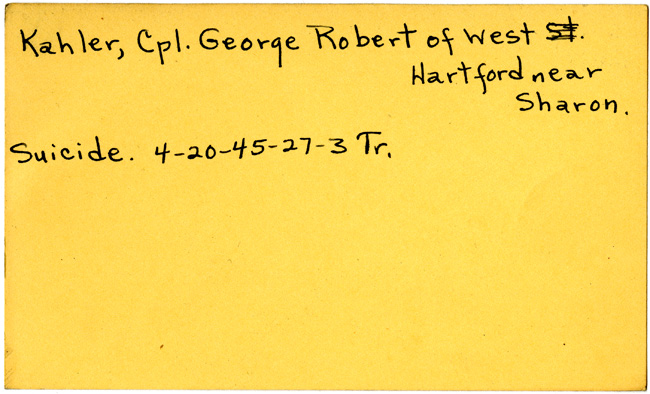 Kahler, Cpl. George Robert of West St.
Hartford near
Sharon.
Suicide. 4-20-45-27-3 Tr.